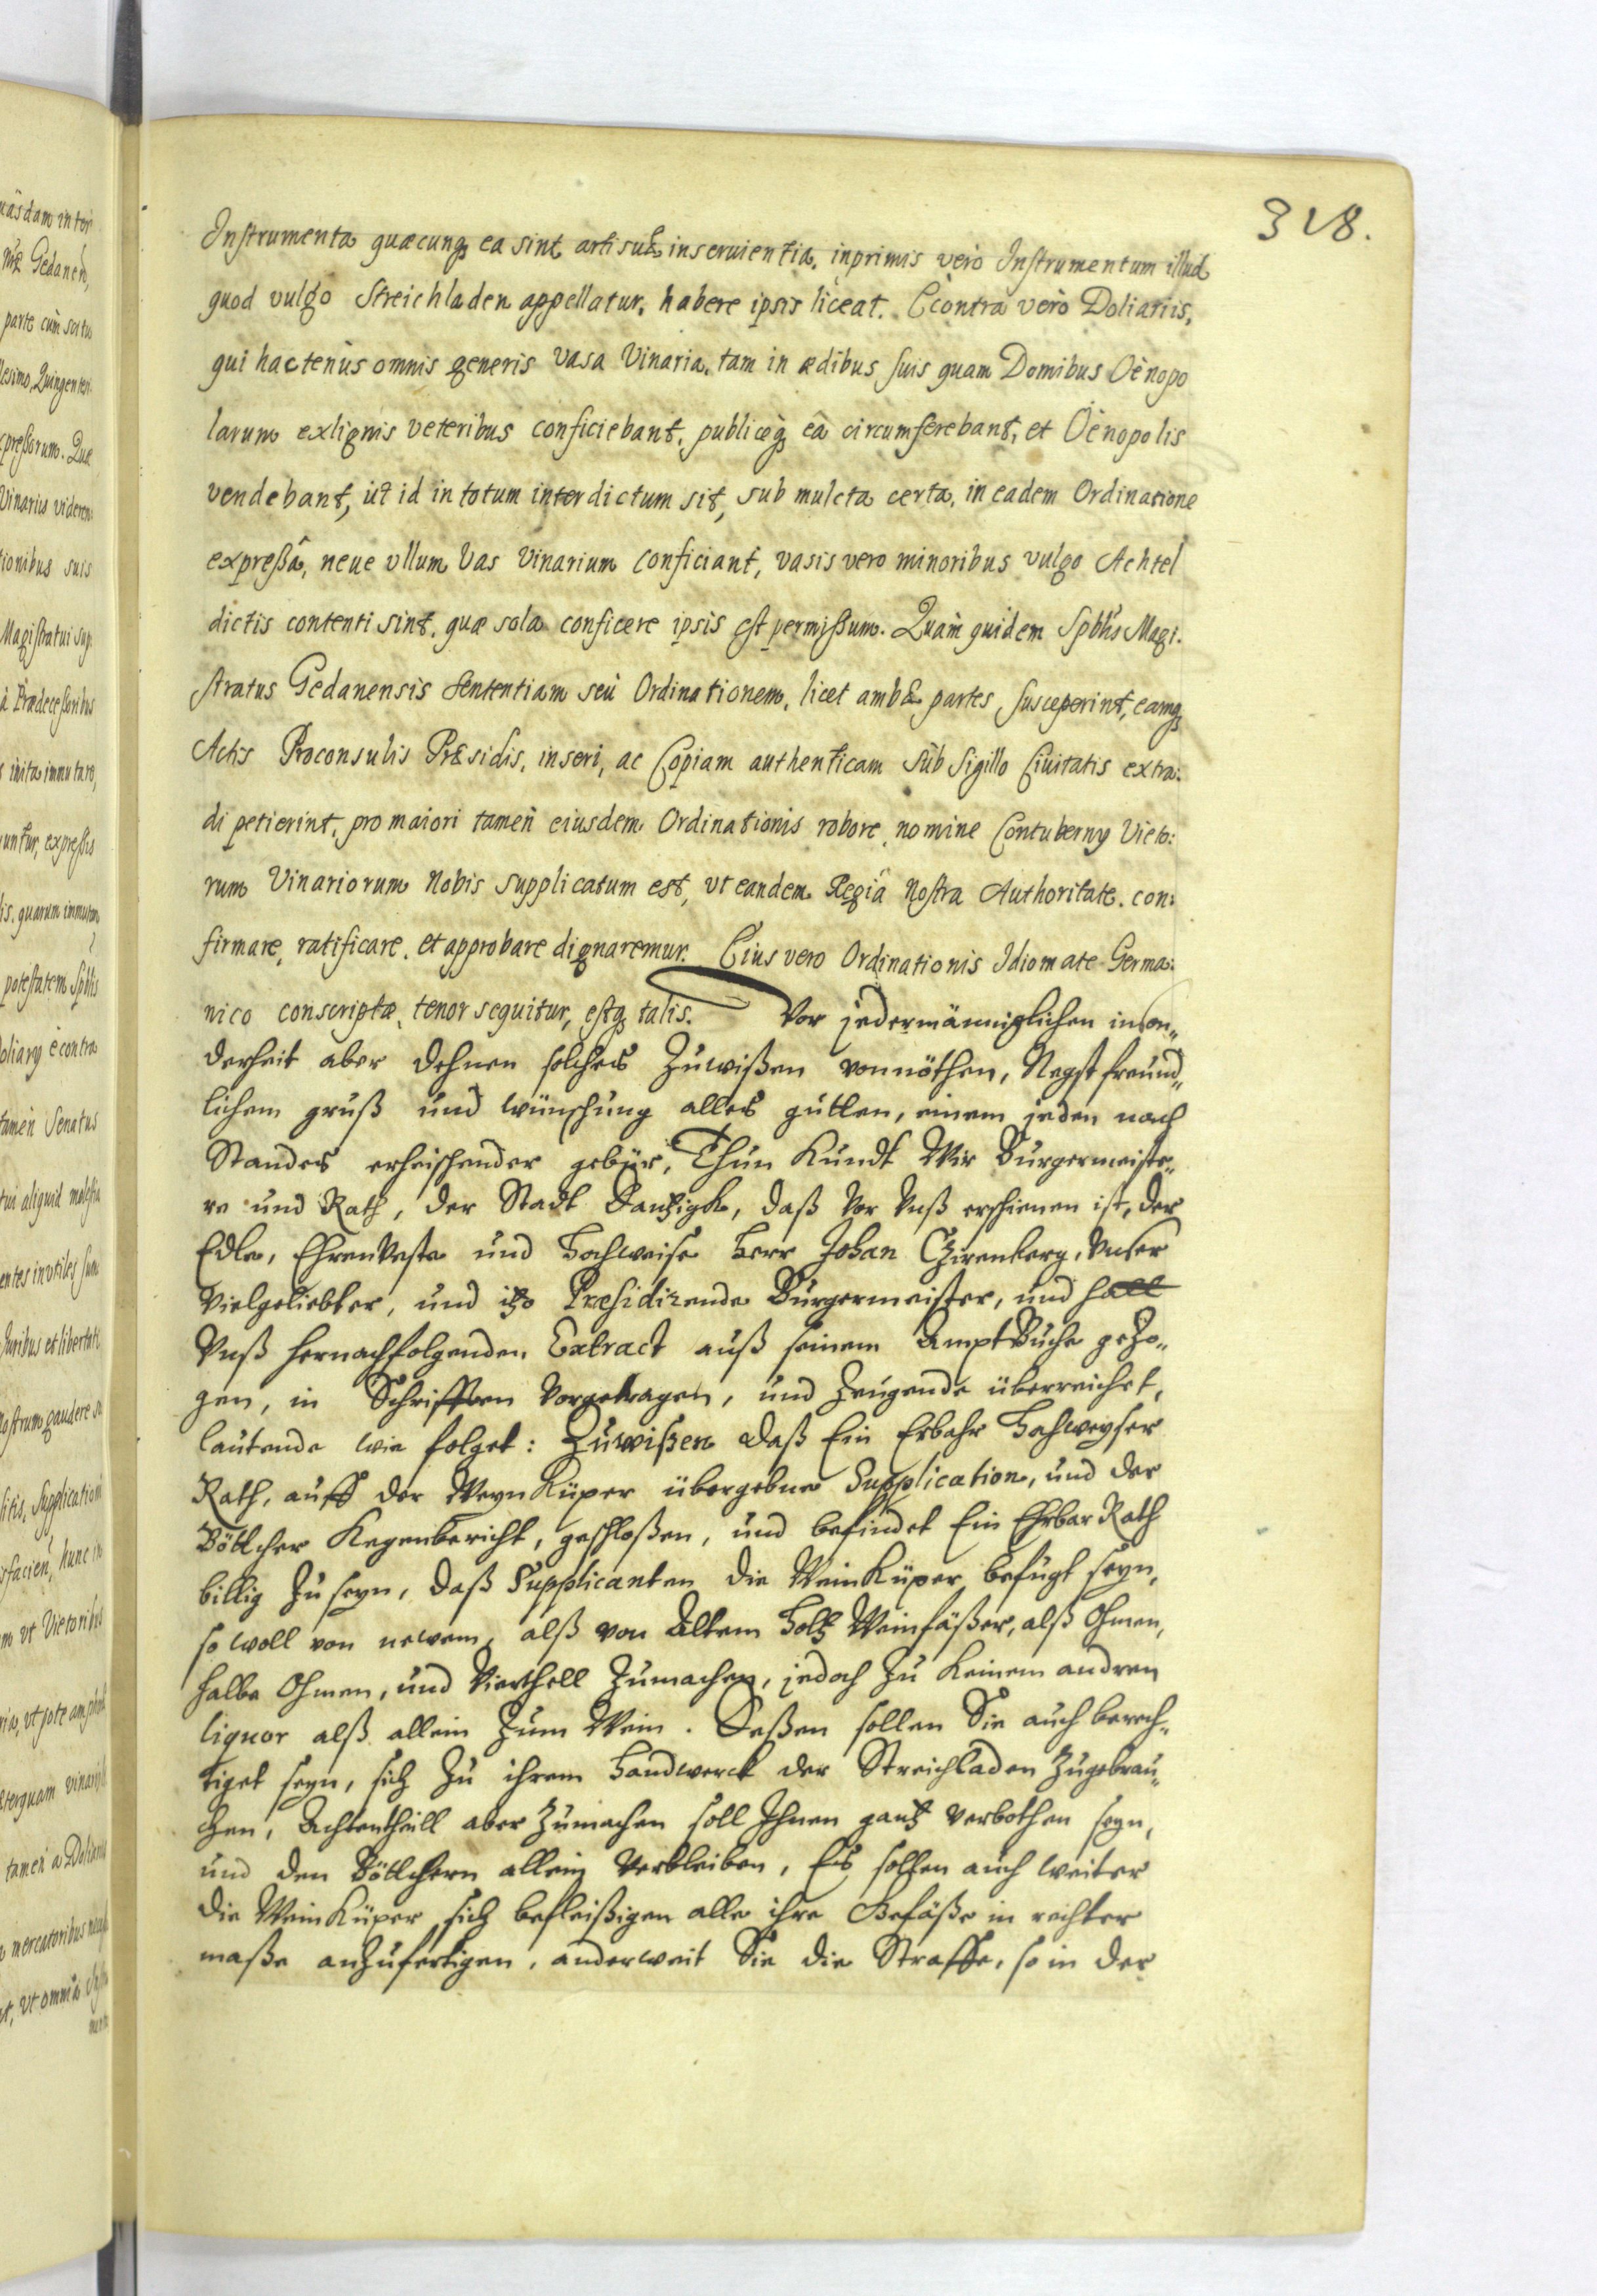 318.
Instrumenta quæcunq; ea sint arti suæ inseruientia, inprimis verò Instrumentum illud
quod vulgo Streichladen appellatur, habere ipsis liceat. Econtra verò Doliariis,
qui hactenùs omnis generis vasa Vinaria, tam in ædibus suis quam Domibus Oënopo
larum ex lignis veteribus conficiebant, publicèq; eà circumferebant, et Oënopolis
vendebant, ùt id in totum interdictum sit, sub mulcta certa, in eadem Ordinatione
expreßâ, neue vllum Vas Vinarium conficiant, vasis vero minoribus vulgo Achtel
dictis contenti sint, quæ sola conficere ipsis est permißum. Quàm quidem Spblis Magi-
stratus Gedanensis Sententiam seù Ordinationem, licet ambæ partes susceperint, eamq;
Actis Proconsulis Præsidis, inseri, ac Copiam authenticam sùb Sigillo Ciuitatis extra:
di petierint, pro maiori tameñ eiusdem Ordinationis robore, nomine Contubernÿ Vieto:
rum Vinariorum Nobis supplicatum est, vt eandem Regiâ Nostra Authoritate con:
firmare, ratificare, et approbare dignaremur. Eius vero Ordinationis Idiomate Germa:
nico conscriptæ, tenor sequitur, estq; talis. Vor jedermänniglichen inson„
derheit aber dehnen solches Zuwißen vonnöthen, Negst freund„
lichem gruß und wünschung alles gutten, einem jeden nach
Standes erheischender gebür, Thun Kundt Wir Burgermeiste„
re und Rath, der Stadt Dantzigk, daß Vor Vnß erschienen ist, der
Edle, EhrenVeste und Hochweise Herr Johan Czirenberg, Vnser
Vielgeliebter, und itzo Præsidirende Burgermeister, und hatt
Vnß hernachfolgenden Extract auß seinem AmptBuche geZo„
gen, in Schrifften Vorgetragen, und Zeugende überreichet,
lautende wie folget: Zuwißen daß Ein Erbahr Hochweyser
Rath, auff der WeynKüper übergebne Supplication, und der
Böttcher Kegenbericht, geschloßen, und befindet Ein Ehrbar Rath
billig Zu seyn, daß Supplicanten die WeinKüper befugt seyn,
so woll von newem, alß von Altem Holtz Weinfäßer, alß Ohmen,
halbe Ohmen, und Vierthell Zumachen, jedoch Zu Keinem andren
liquor alß allein Zum Wein. Deßen sollen Sie auch berech„
tiget seyn, sich Zu ihrem Handwerck der Streichladen Zugebrau„
chen, Achtentheill aber Zumachen soll Ihnen gantz Verbothen seyn,
und den Böttchern allein Verbleiben, Es sollen auch weiter
die WeinKüper sich befleißigen alle ihre Gefäße in rechter
maße anZufertigen, anderweit Sie die Straffe, so in der